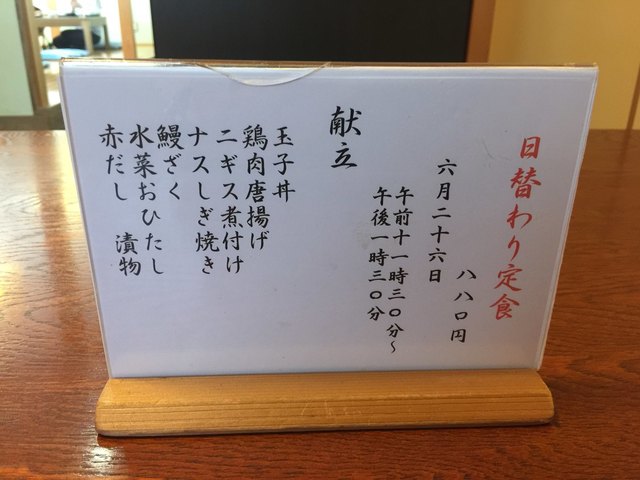 日替わり定食
八八〇円
六月二十六日
午前十一時三〇分～
午後一時三〇分
献立
玉子丼
鶏肉唐揚げ
ニギス煮付け
ナスしぎ焼き
鰻ざく
水菜おひたし
赤だし　漬物